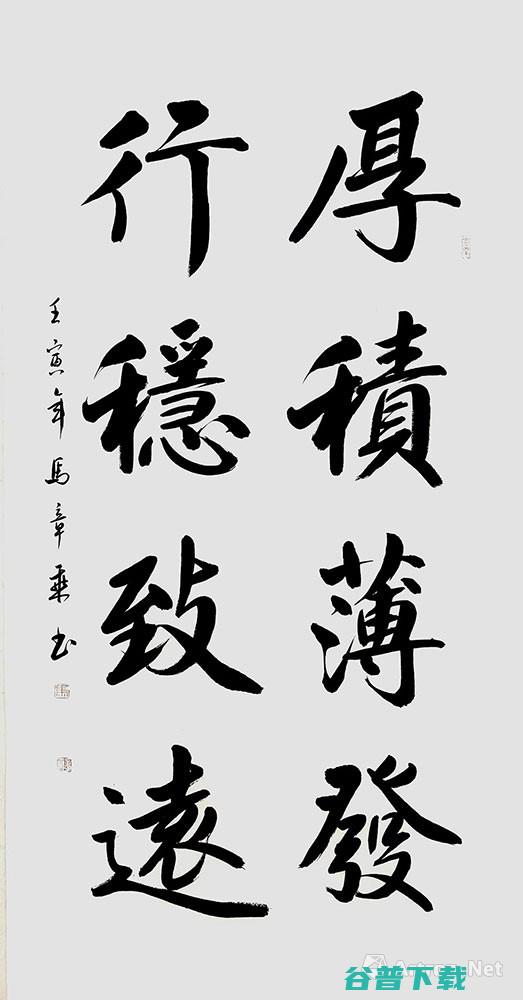 厚積薄發
行穩致遠
壬寅年馬章乘书
Artron.Net
谷普下载